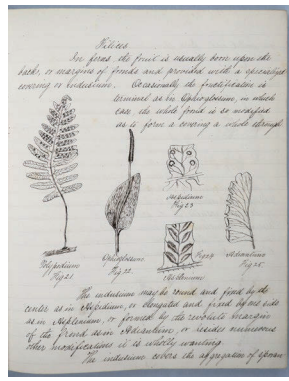 Filices
In ferns the fruit is usually born upon the
backs, or margins of fronds and provided with a specialized
covering or Indusium. Occasionally the fructification is
terminal as in Ophioglossum, in which
case the whole frond is so modified
as to form a covering
Aspidium
Fig 23
Polypodium
Fig 21
Ophioglossum
Fig 22
Fig 24
Asplenium
Adiantum
Fig 25
The indusium may be round and fixed by its
center as in Aspidium, or elongated and fixed by one side
as in Asplenium, or formed by the revolute margin
of the frond as in Adiantum, or besides numerous
other modifications it is wholly wanting
The indusium covers the aggregation of sporan